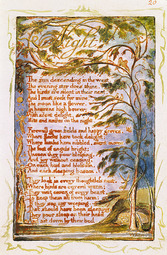 20
Night
The sun descending in the west
The evening star does shine,
The birds are silent in their nest,
And I must seek for mine,
The moon like a flower,
In heavens high bower;
With silent delight,
Sits and smiles on the night.
Farewell green fields and happy groves,
Where flocks have took delight;
Where lambs have nibbled, silent moves
The feet of angels bright;
Unseen they pour blessing,
And joy without ceasing,
On each bud and blossom,
And each sleeping bosom.
They look in every thoughtless nest,
Where birds are coverd warm;
They visit caves of every beast,
To keep them all from harm;
If they see any weeping,
That should have been sleeping
They pour sleep on their head
And sit down by their bed.